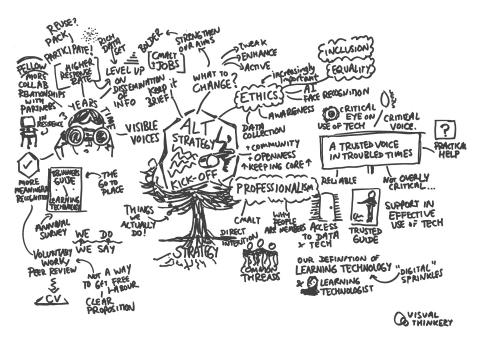 R.PUSE?
PACK
PARTICIPATE!
RICH
DATA
SET
HIGHER
RESPONSE
RATE
LEVEL UP
ON
DISSEMINATION
OF INFO
FELLOW
MORE
COLLAB
RELATIONSHIPS
WITH
PARTNERS
IN
RESIDENCE
YEARS
VISIBLE
VOICES
BOLDER
CMALT
JOBS
KEEP IT
BRIEF
STRENGTHEN
OUR AIMS
WHAT TO
CHANGE?
TWEAK
ENHANCE
ACTIVE
ALT
STRATEGY
KICK-OFF
STRATEGY
INCLUSION
EQUALITY
increasingly
important
ETHICS
AI
FACE RECOGNITION
AWARENESS
DATA
COLLECTION
+ COMMUNITY
+ OPENNESS
+ KEEPING CORE
CRITICAL
EYE ON
USE OF TECH
CRITICAL
VOICE.
A TRUSTED VOICE
IN TROUBLED TIMES
?
PRACTICAL
HELP
RELIABLE
NOT OVERLY
CRITICAL...
PROFESSIONALISM
CMALT
DIRECT
INTENTION
WHY
PEOPLE
ARE MEMBERS
ACCESS
TO DATA
& TECH
TRUSTED
GUIDE
SUPPORT IN
EFFECTIVE
USE OF TECH
COMMON
THREADS
OUR DEFINITION OF
LEARNING TECHNOLOGY
& LEARNING
TECHNOLOGIST
"DIGITAL"
SPRINKLES
MORE
MEANINGFUL
RECOGNITION
GUIDE
LEARNING
TECHNOLOGY
THE
GO TO
PLACE
THINGS
WE
ACTUALLY
DO!
ANNUAL
SURVEY
WE DO
WE SAY
VOLUNTARY
WORK,
PEER REVIEW
CV
NOT A WAY
TO GET FREE
LABOUR
CLEAR
PROPOSITION
VISUAL
THINKERY